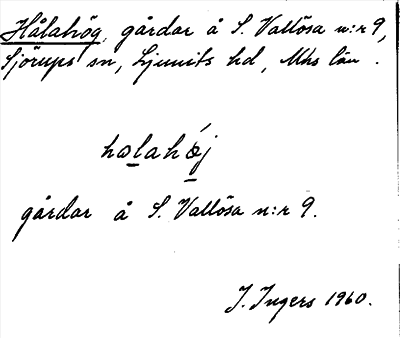 Hålahög, gårdar å S. Vallösa n:r 9,
Sjörups sn, Ljunits hd, Mhs län.
hɷlahǿj
gårdar å S. Vallösa n:r 9.
I. Ingers 1960.